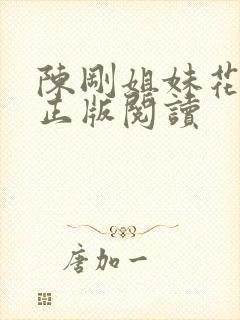 陳剛姐妹花
正版閱讀
唐加一